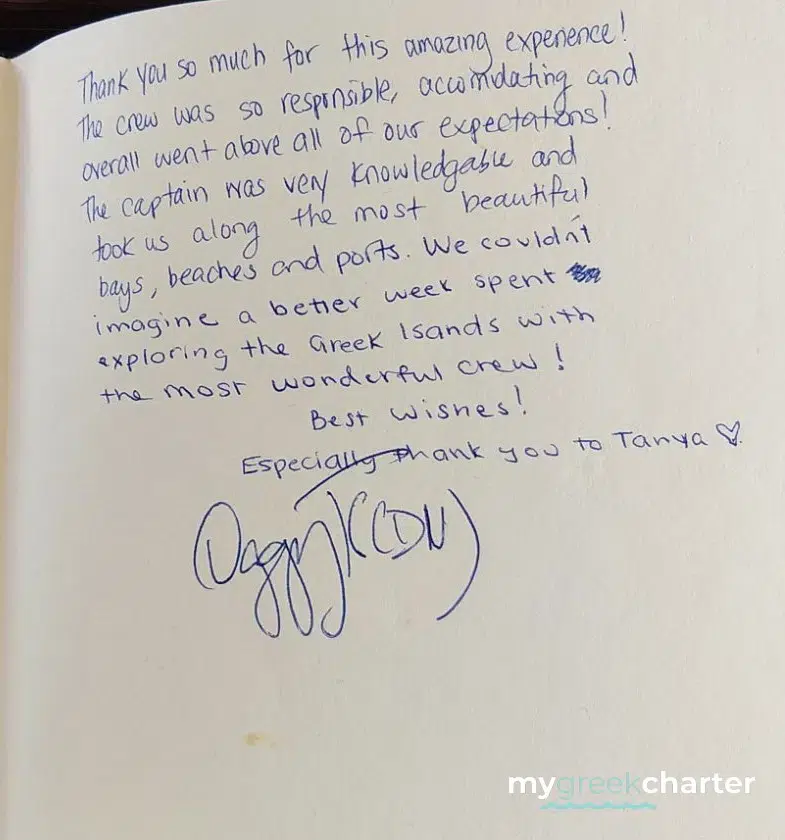 Thank you so much for this amazing experience!
The crew was so responsible, accomidating and
overall went above all of our expectations!
The captain was very knowledgable and
took us along the most beautiful
bays, beaches and ports. We couldn't
imagine a better week spent
exploring the Greek Isands with
the most wonderful crew!
Best wishes!
Especially thank you to Tanya ♡
(CDN)
mygreekcharter